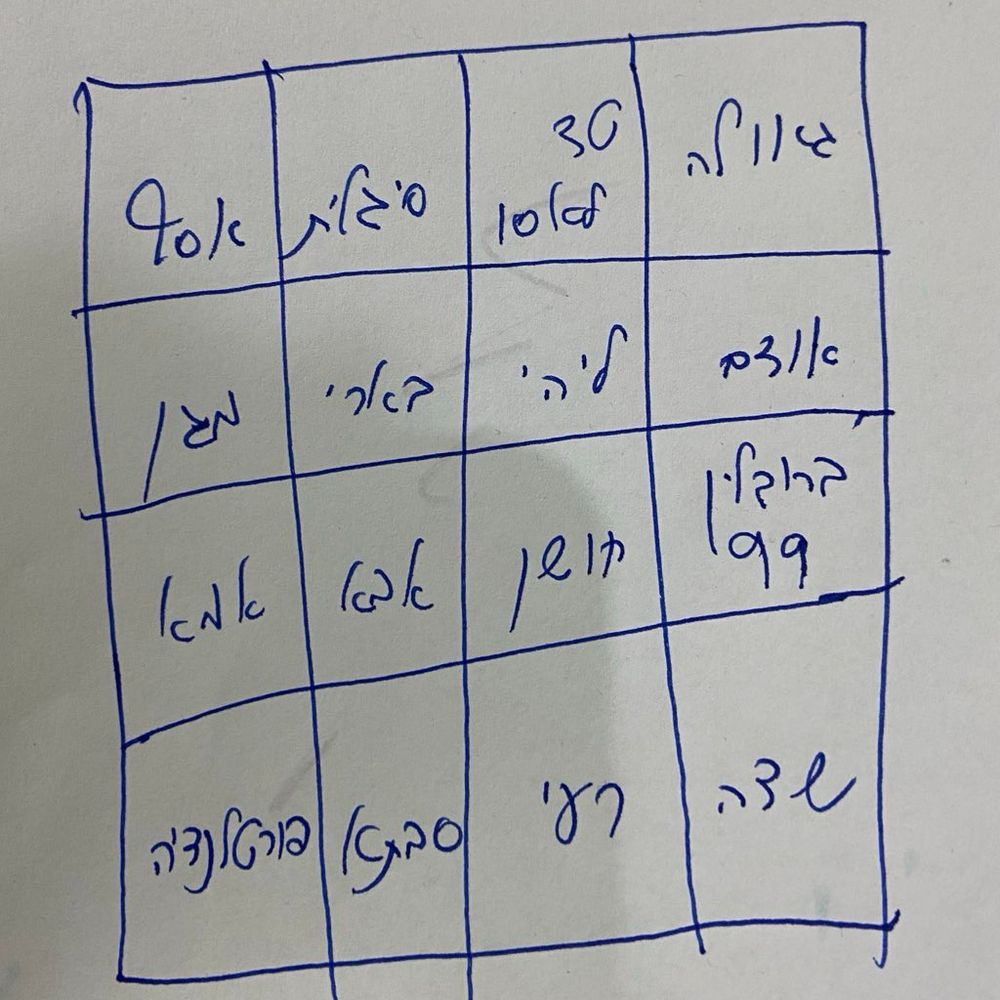 גאולה
טד
לאסו
סיגלית
אסף
אודם
ליהי
בארי
מגן
ברוקלין
99
חושן
אבא
אמא
שדה
רעי
סבתא
פורטלנדיה